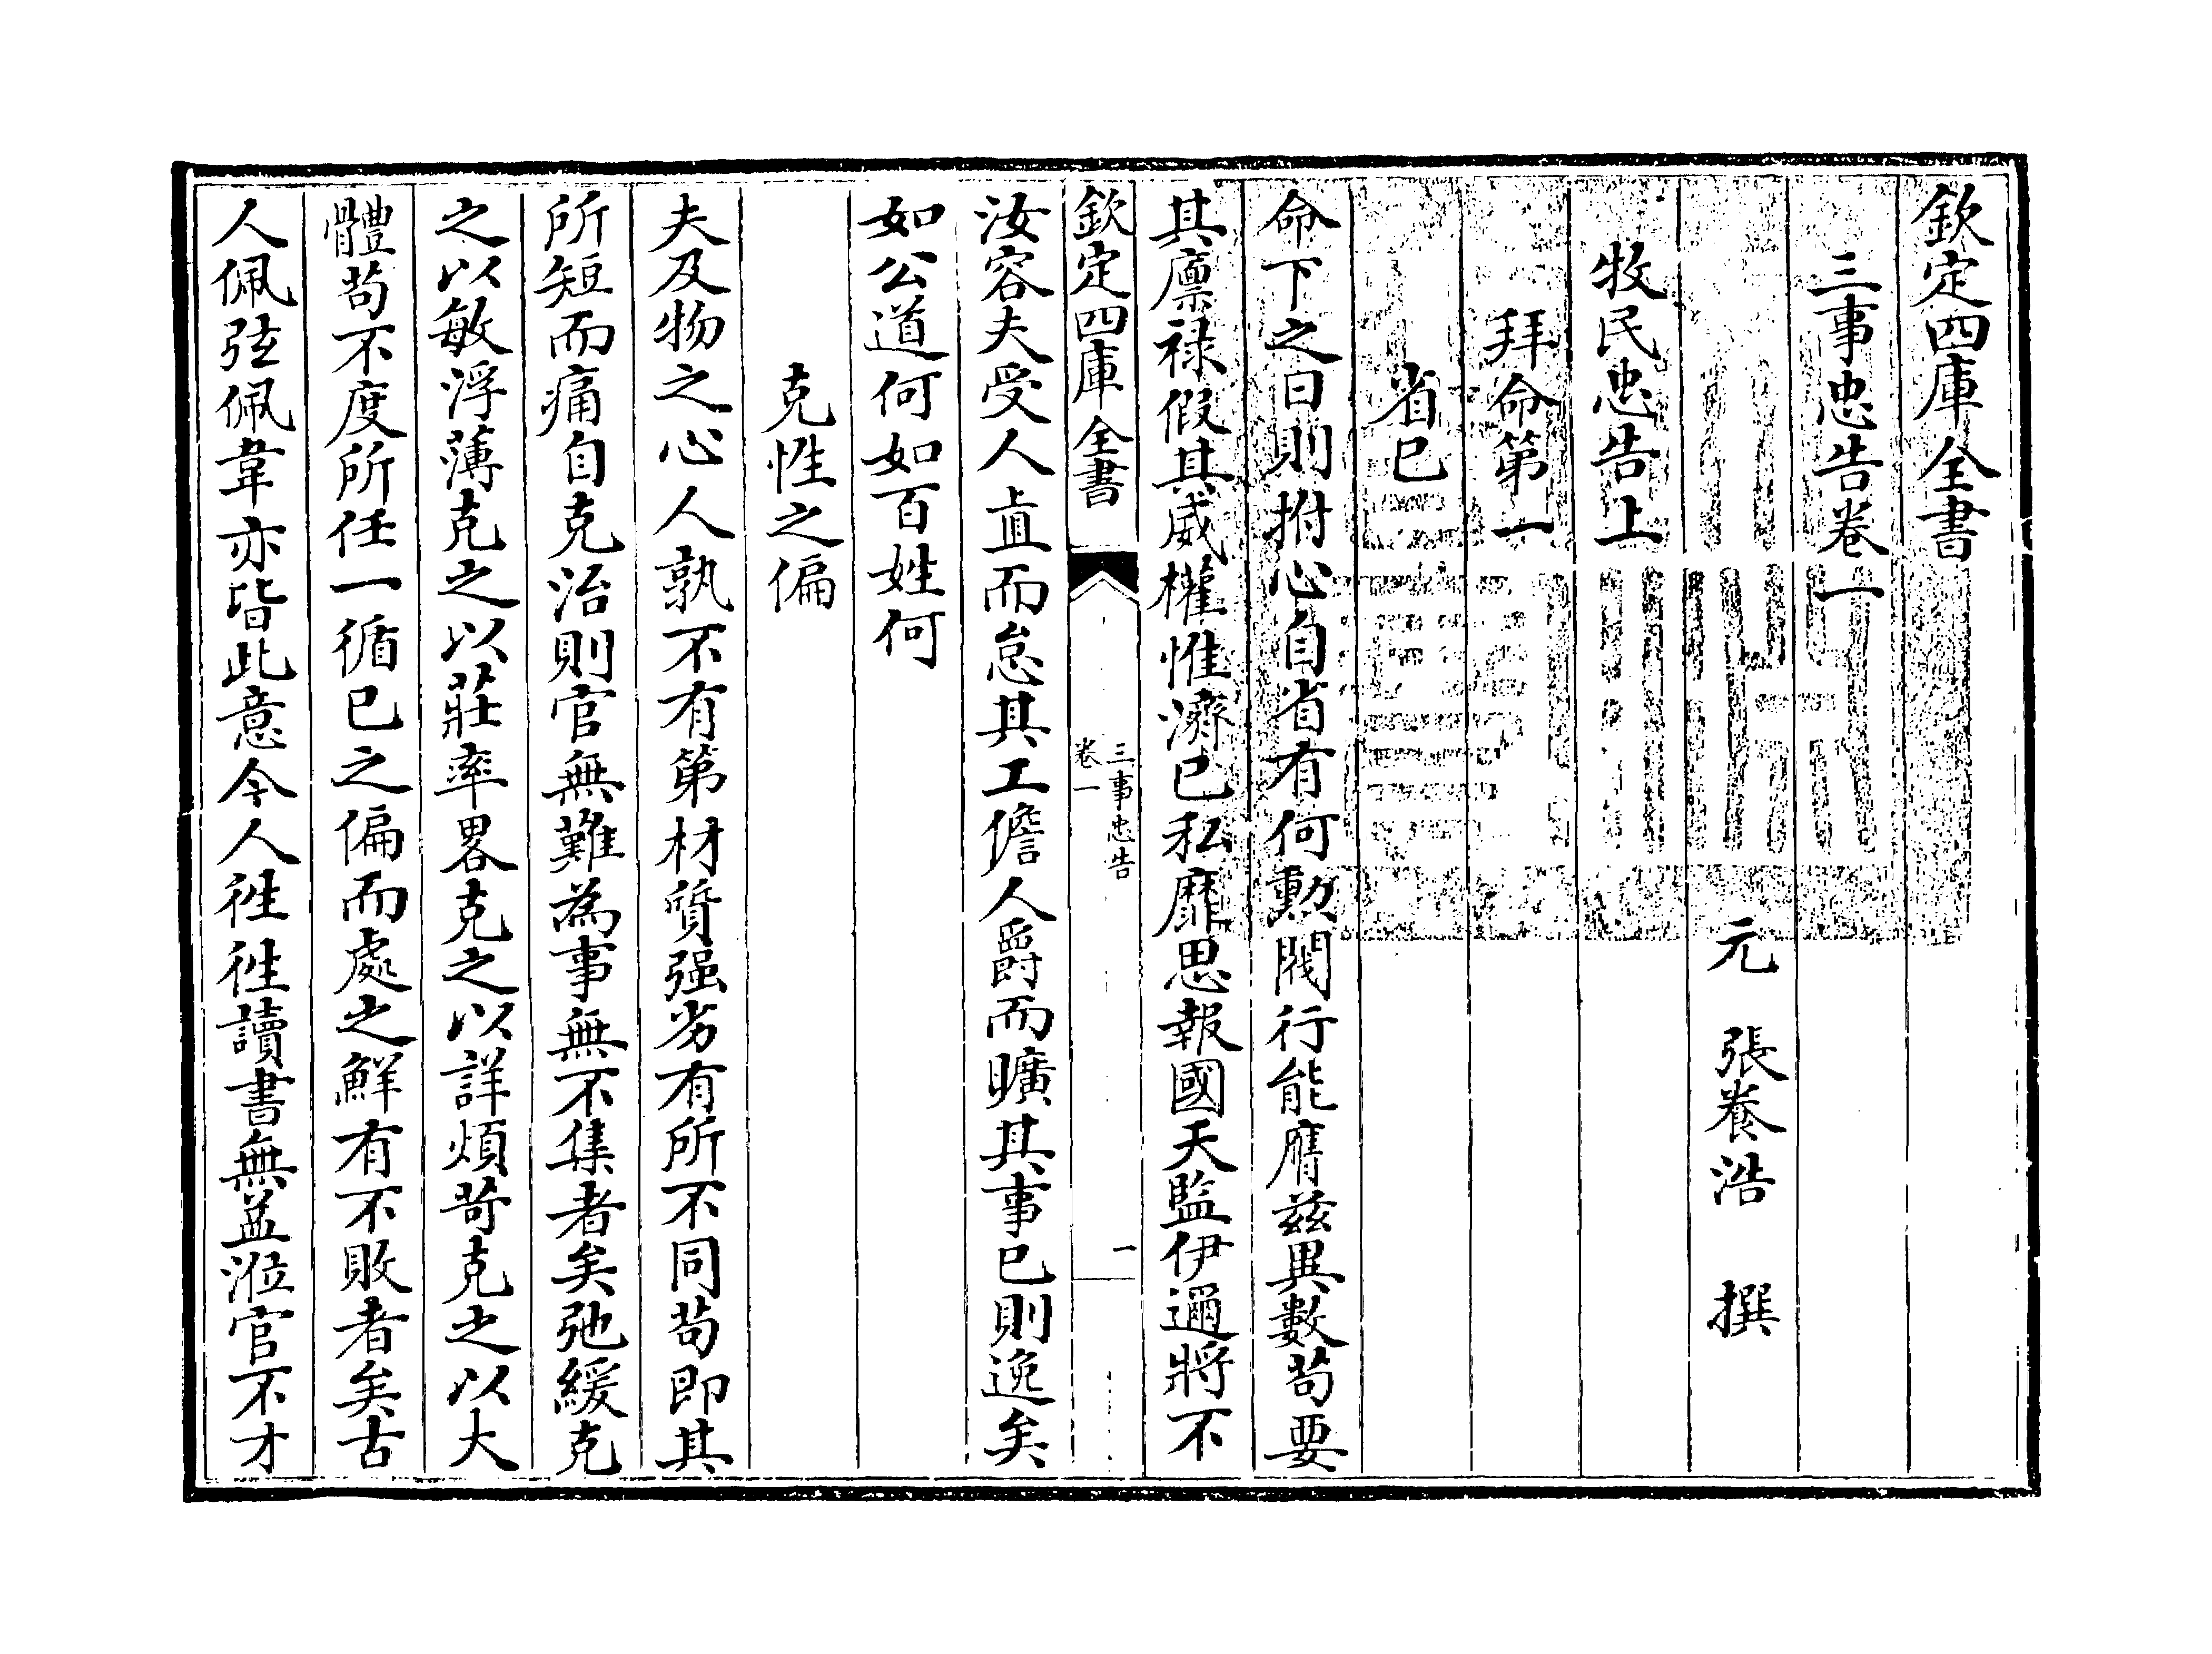 欽定四庫全書
三事忠告卷一
元 張養浩 撰
牧民忠告上
拜命第一
省已
命下之日則拊心自省有何勲閥行能膺兹異數茍要
其廪禄假其威權惟濟已私靡思報國天監伊邇將不
欽定四庫全書
三事忠告
卷一
一
汝容夫受人直而怠其工儋人爵而曠其事已則逸矣
如公道何如百姓何
克性之偏
夫及物之心人孰不有第材質强劣有所不同茍即其
所短而痛自克治則官無難為事無不集者矣弛緩克
之以敏浮薄克之以莊率畧克之以詳煩苛克之以大
體茍不度所任一循已之偏而處之鮮有不敗者矣古
人佩弦佩韋亦皆此意今人徃徃讀書無益涖官不才